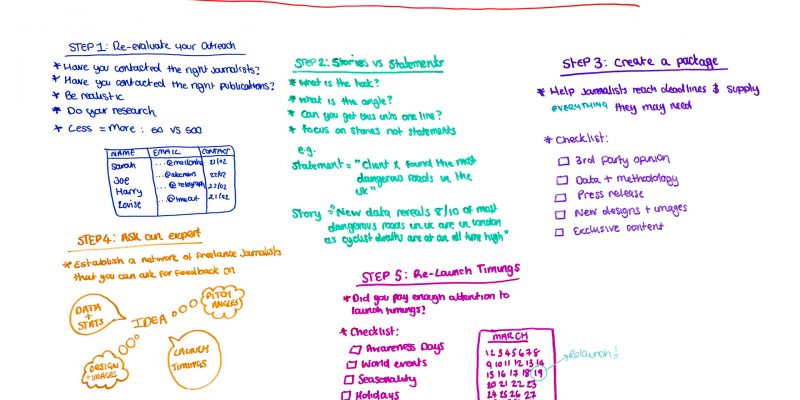 STEP 1: Re-evaluate your Outreach
* Have you contacted the right journalists?
* Have you contacted the right publications?
* Be realistic
* Do your research
* Less = More : 60 vs 500
NAME EMAIL CONTACT
Sarah ...@mailonline 21/02
Joe 22/02
Harry ...@telegraph 22/02
Louise ...@timeout 21/02
STEP 2: Stories vs Statements
* What is the hook?
* What is the angle?
* Can you get this into one line?
* Focus on stories not statements
e.g.
Statement = "Client X found the most
dangerous roads in the
UK"
Story = "New data reveals 8/10 of most
dangerous roads in UK are in London
as cyclist deaths are at an all time high"
STEP 3: Create a package
* Help journalists reach deadlines & supply
EVERYTHING they may need
* Checklist:
3rd party opinion
Data + methodology
Press release
New designs + images
Exclusive content
STEP 4: Ask an expert
* Establish a network of freelance journalists
that you can ask for feedback on
DATA
+
STATS
PITCH
ANGLES
IDEA
DESIGN
+ IMAGES
LAUNCH
TIMINGS
STEP 5: Re-Launch Timings
* Did you pay enough attention to
launch timings?
* Checklist:
Awareness Days
World events
Seasonality
Holidays
MARCH
1 2 3 4 5 6 7 8
9 10 11 12 13 14
15 16 17 18 19
20 21 22 23
24 25 26 27
Relaunch!